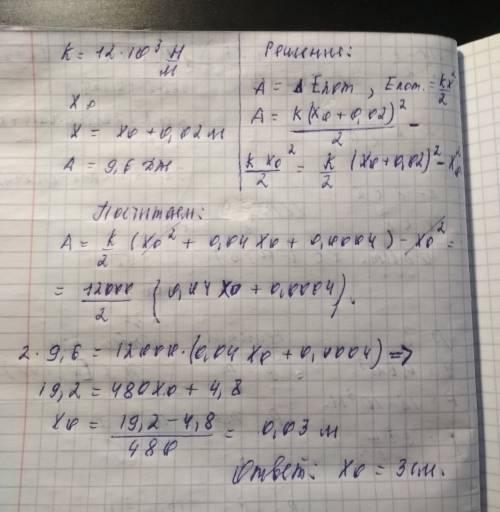 K = 12·10³ Н/м
X₀
X = X₀ + 0,02 м
A = 9,6 Дж
Решение:
A = Δ Eпот , Eпот. = kx²/2
A = K(X₀ + 0,02)²/2 −
k X₀²/2 = k/2 (X₀ + 0,02)² − X₀²
Посчитаем:
A = k/2 (X₀² + 0,04 X₀ + 0,0004) − X₀² =
= 12000/2 (0,04 X₀ + 0,0004).
2 · 9,6 = 12000·(0,04 X₀ + 0,0004) =>
19,2 = 480X₀ + 4,8
X₀ = 19,2 − 4,8/480 = 0,03 м
Ответ: X₀ = 3 см.